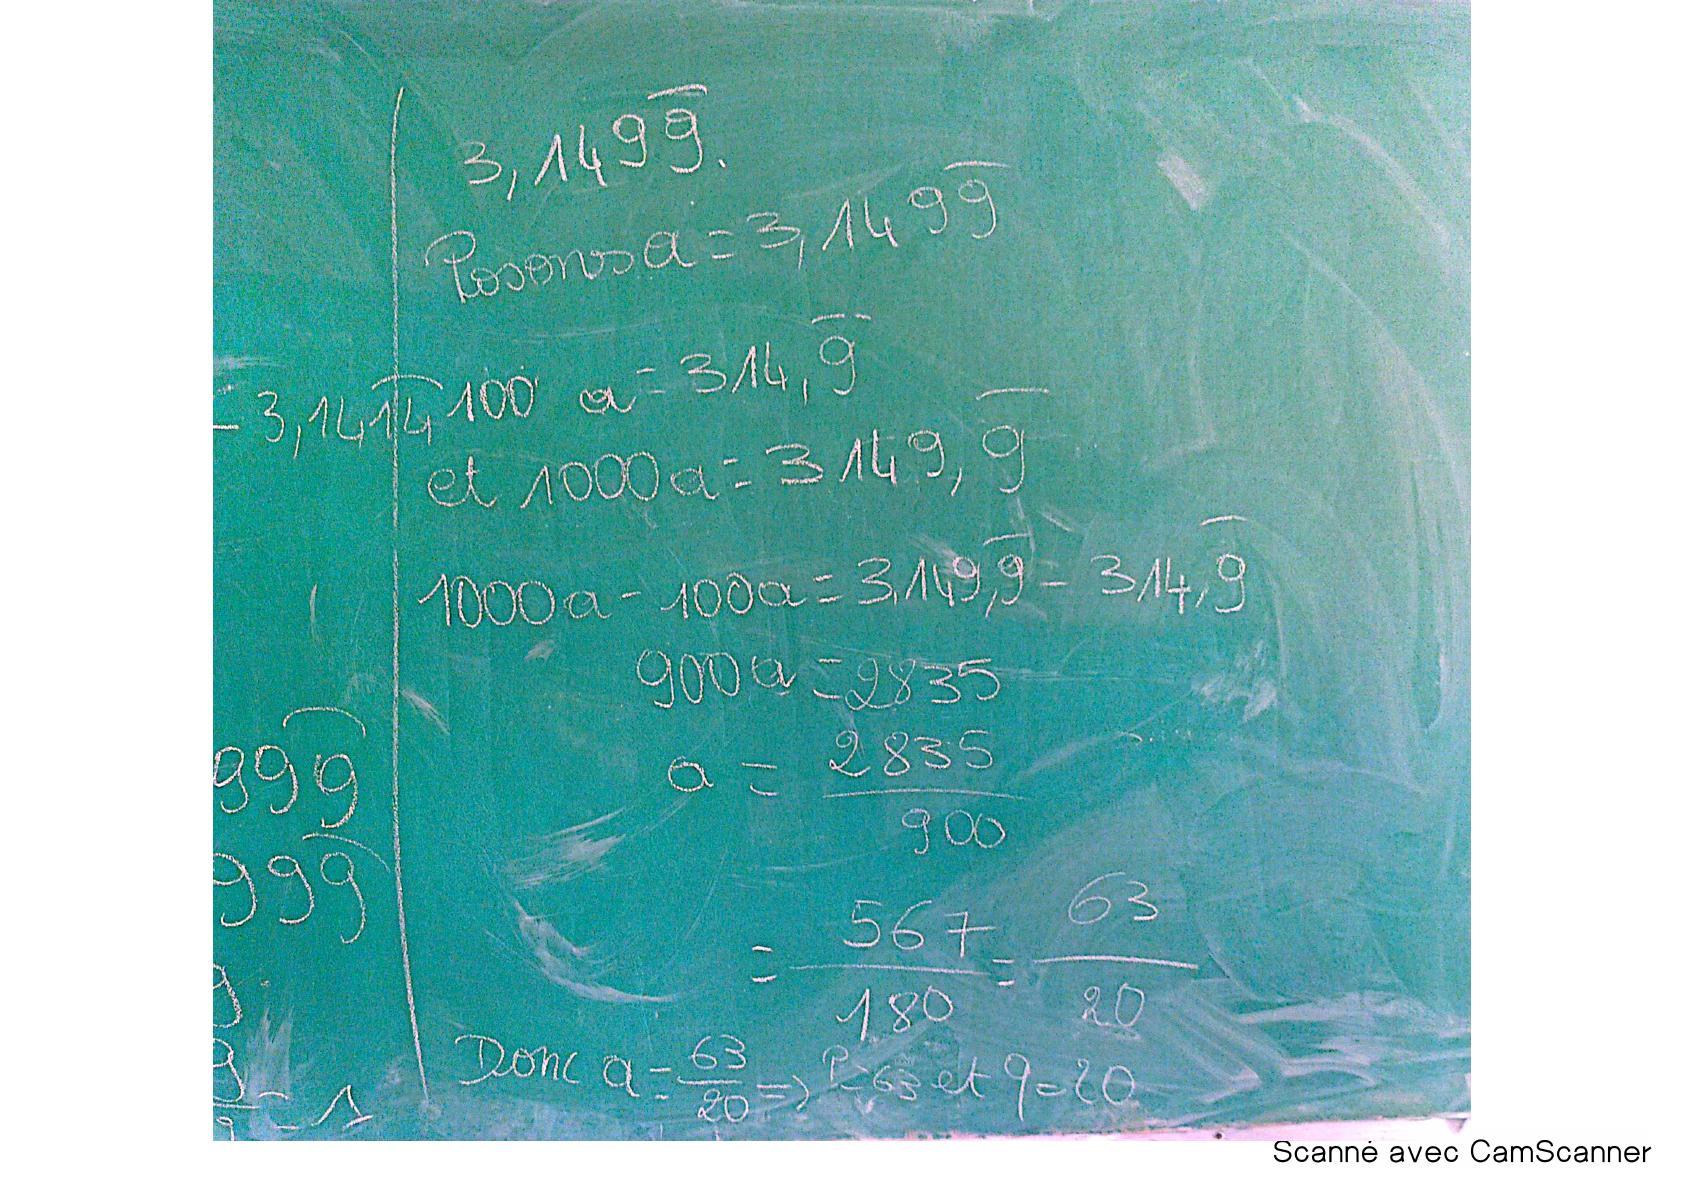 3,1499̅.
Posons a = 3,1499̅
100 a = 314,9̅
et 1000a = 3149,9̅
1000a - 100a = 3149,9̅ - 314,9̅
900a = 2835
a = 2835/900
= 567/180 = 63/20
Donc a = 63/20 => P=63 et q=20
= 3,1414̅
999̅
999̅
9.
9/9 = 1
Scanné avec CamScanner